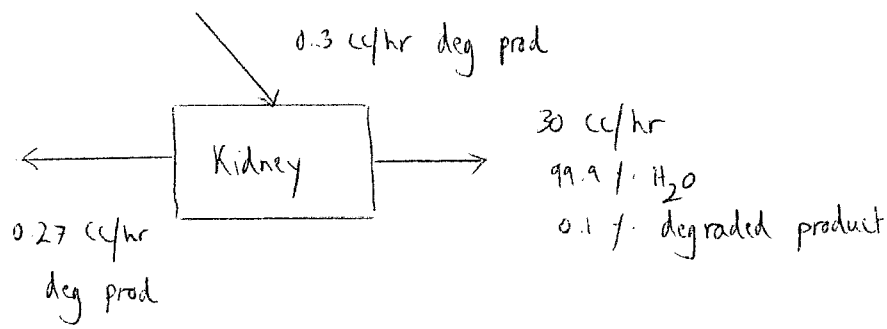 0.3 cc/hr deg prod
Kidney
30 cc/hr
99.9 % H₂O
0.1 % degraded product
0.27 cc/hr
deg prod